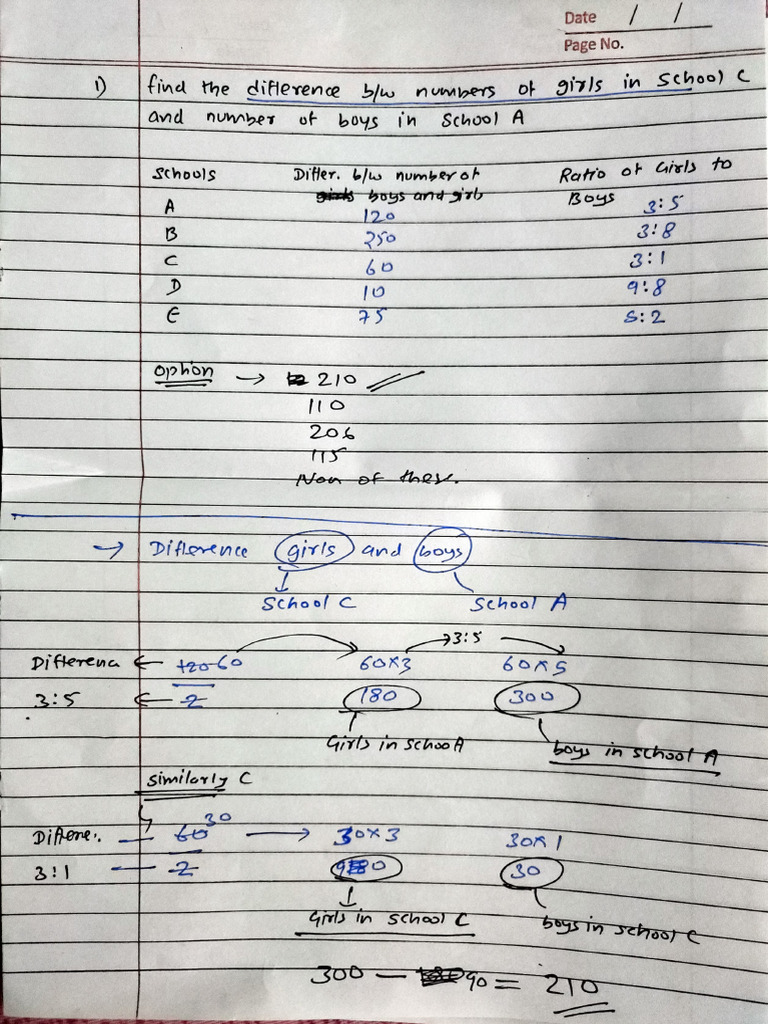 Date / /
Page No.
1) find the difference b/w numbers of girls in school C
and number of boys in school A
Schools Differ. b/w number of Ratio of Girls to
boys and girls Boys
A 120 3:5
B 250 3:8
C 60 3:1
D 10 9:8
E 75 5:2
Option → 210
110
206
115
Non of these.
→ Difference girls and boys
School C School A
→ 3:5
Differenca ← 120 60 60×3 60×5
3:5 ← 2 180 300
Girls in schoo A boys in school A
Similarly C
30
Differe. 60 → 30×3 30×1
3:1 2 90 30
Girls in school C boys in school C
300 — 90 = 210